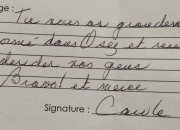 ge :
Tu nous as grandem
dans Osez et
dérider nos gens
Bravo! et merci
Signature : Carole